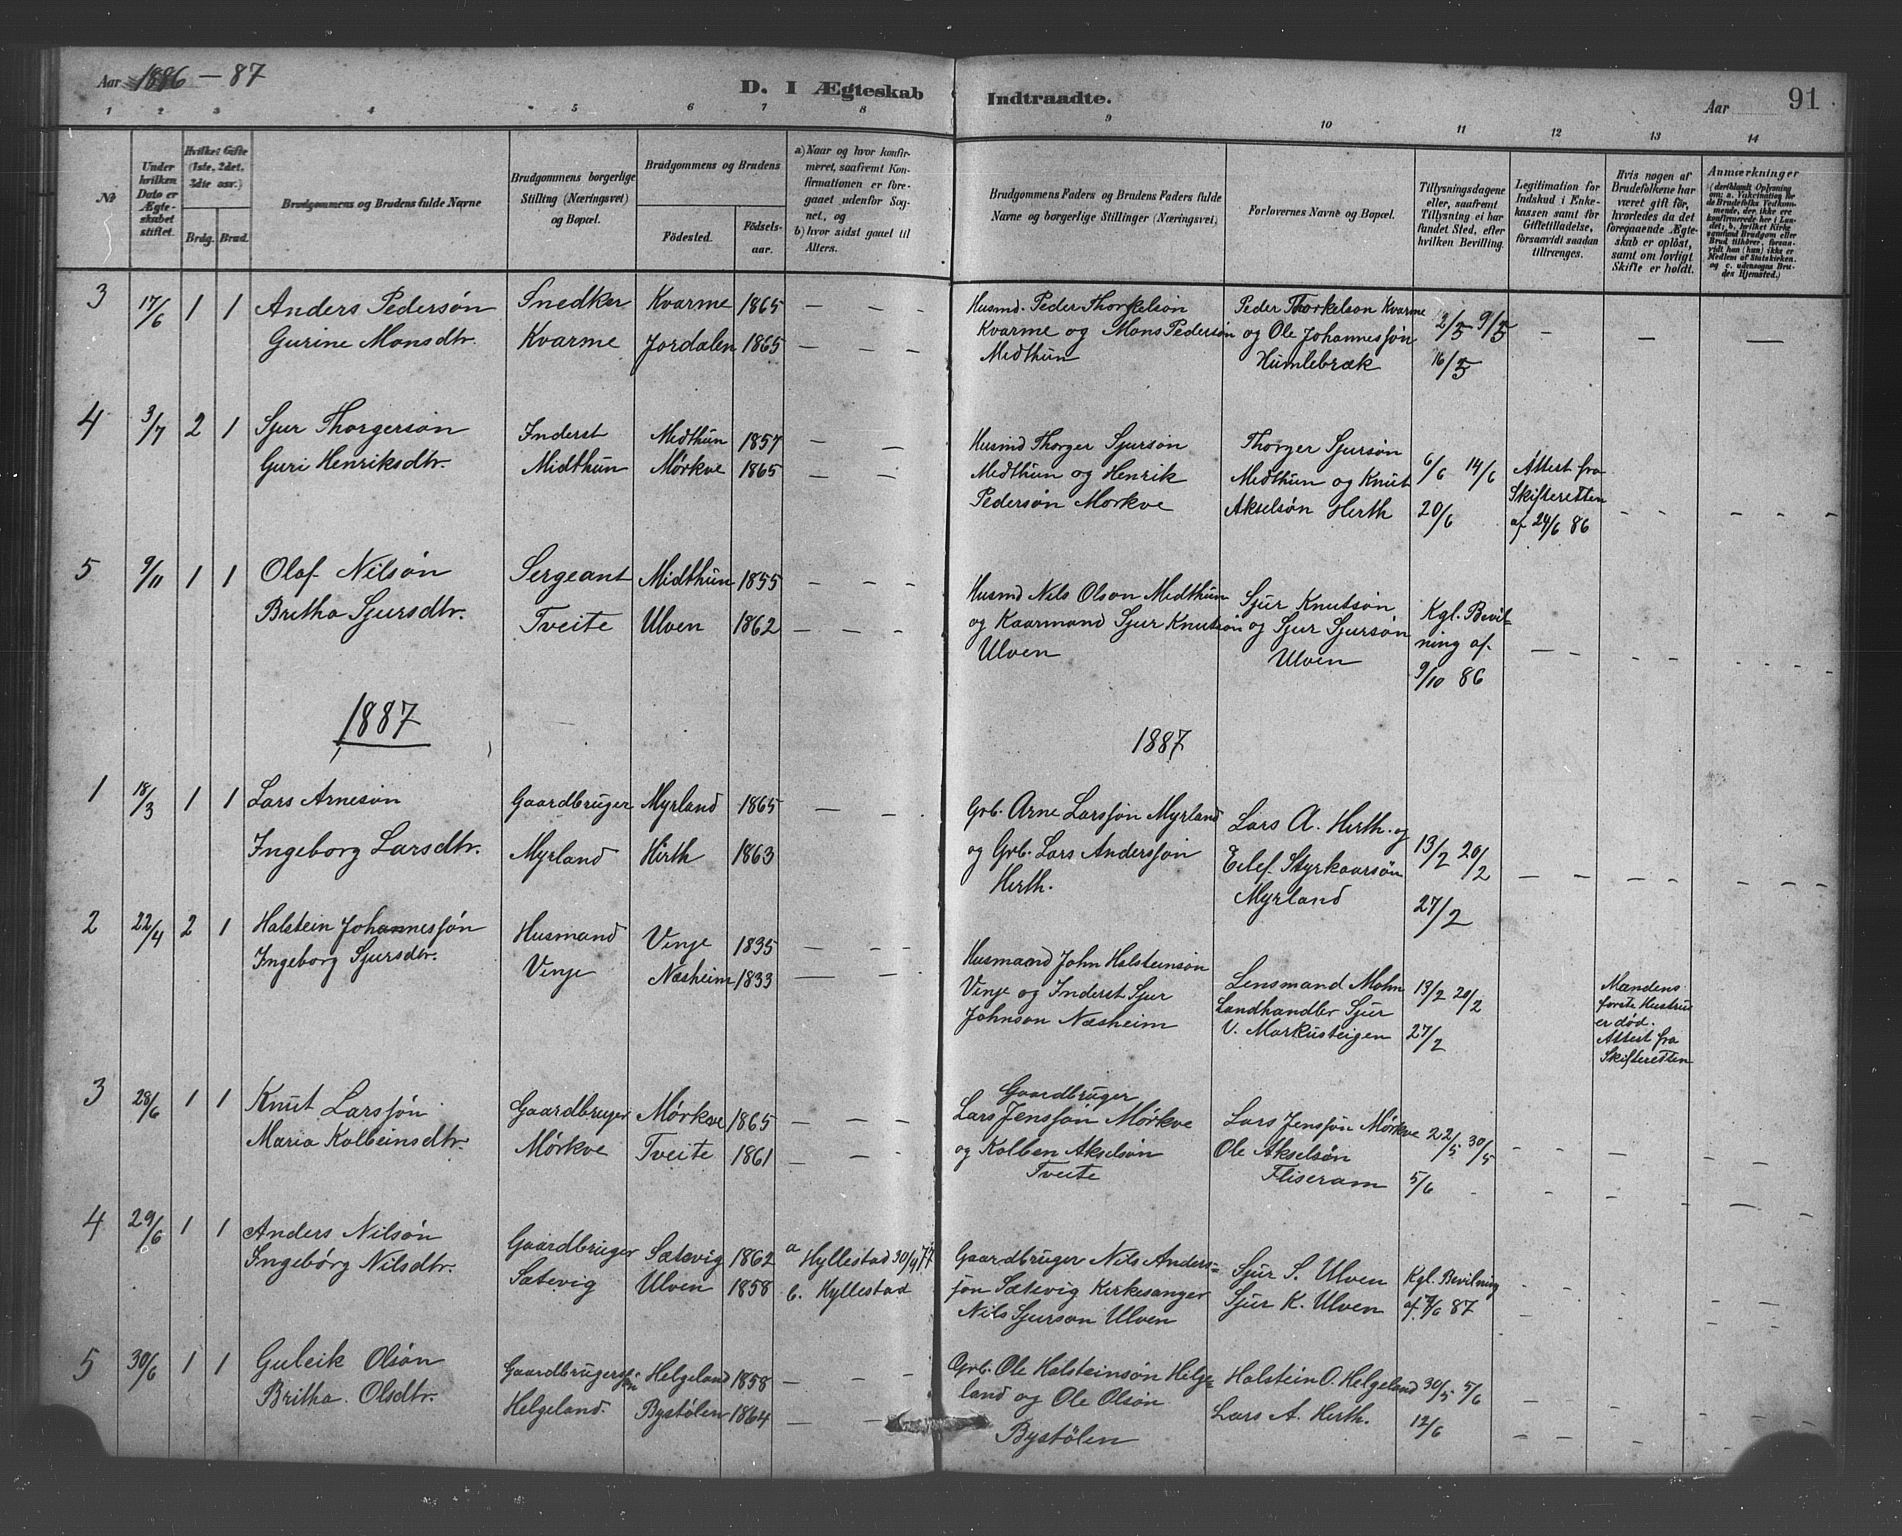 Aar 1886 – 87
D. I Ægteskab Indtraadte.
Aar 91
1 2 3 4 5 6 7 8 9 10 11 12 13 14
№
Under hvilken Dato er Ægteskabet stiftet.
Hvilket Gifte (1ste, 2det, 3die osv.)
Brdg. Brud.
Brudgommens og Brudens fulde Navne
Brudgommens borgerlige Stilling (Næringsvei) og Bopæl.
Brudgommens og Brudens
Fødested. Fødselsaar.
a) Naar og hvor konfirmeret, saafremt Konfirmationen er foregaaet udenfor Sognet, og
b) hvor sidst gaaet til Alters.
Brudgommens Faders og Brudens Faders fulde Navne og borgerlige Stillinger (Næringsvei).
Forlovernes Navne og Bopæl.
Tillysningsdagene eller, saafremt Tillysning ei har fundet Sted, efter hvilken Bevilling.
Legitimation for Indskud i Enkekassen samt for Giftetilladelse, forsaavidt saadan tiltrænges.
Hvis nogen af Brudefolkene har været gift før, hvorledes da det foregaaende Ægteskab er opløst, samt om lovligt Skifte er holdt.
Anmærkninger
3 17/6 1 1 Anders Pedersøn Snedker Kvarme 1865 – – – Husmd. Peder Thorkelsøn Peder Thorkelson Kvarme 2/5 9/5
Gurine Monsdtr. Kvarme Jordalen 1865 – – – Kvarme og Mons Pedersøn og Ole Johannessøn – – –
Midthun Humlebræk 16/5
4 3/7 2 1 Sjur Thorgersøn Inderst Midthun 1857 – – Husmd Thorger Sjursøn Thorger Sjursøn
Guri Henriksdtr. Midthun Mørkve 1865 – – Midthun og Henrik Midthun og Knut 6/6 14/6 Attest fra
Pedersøn Mørkve Akselsøn Herth 20/6 Skifteretten
af 24/6 86
5 9/11 1 1 Olaf Nilsøn Sergeant Midthun 1855 – – – Husmd Nils Olson Midthun Sjur Knutsøn Kgl. Bevil-
Britha Sjursdtr. Tveite Ulven 1862 – – – og Kaarmand Sjur Knutsøn og Sjur Sjursøn ning af.
Ulven Ulven 9/10 86
1887 1887
1 18/3 1 1 Lars Arnesøn Gaardbruger Myrland 1865 – – Grb. Arne Larssøn Myrland Lars A. Herth. og
Ingeborg Larsdtr. Myrland Hirth 1863 og Grb. Lars Anderssøn Eilef Styrkaarsøn 13/2 20/2
Herth. Myrland 27/2
2 22/4 2 1 Halstein Johannessøn Husmand Vinje 1835 – – – Husmand John Halsteinsøn
Ingeborg Sjursdtr. Vinje Næsheim 1833 – – – Vinje og Inderst Sjur Lensmand Mohn 13/2 20/2 Mandens
Johnson Næsheim Landhandler Sjur første Hustru
V. Markusteigen 27/2 er død.
Attest fra
Skifteretten
3 28/6 1 1 Knut Larssøn Gaardbruger Mørkve 1865 – – – Gaardbruger
Maria Kolbeinsdtr. Mørkve Tveite 1861 – – – Lars Jenssøn Mørkve Lars Jenssøn Mørkve 22/5 30/5
og Kolben Akselsøn Ole Akselsøn
Tveite Fliseram 5/6
4 29/6 1 1 Anders Nilsøn Gaardbruger Sætevig 1862 a Hyllestad 30/9 77 Gaardbruger Nils Anders= Sjur S. Ulven Kgl. Bevilning
Ingebørg Nilsdtr. Sætevig Ulven 1858 b. Hyllestad søn Sætevig Kirkesanger Sjur K. Ulven af 87
Nils Sjurson Ulven
5 30/6 1 1 Guleik Olsøn Gaardbrugersøn Helgeland 1858 – – – Grb. Ole Halsteinsøn Helge= Halstein O. Helgeland 30/5 5/6
Britha Olsdtr. Helgeland. Bystølen 1864 – – land og Ole Olsøn Lars A. Herth. 12/6
Bystølen